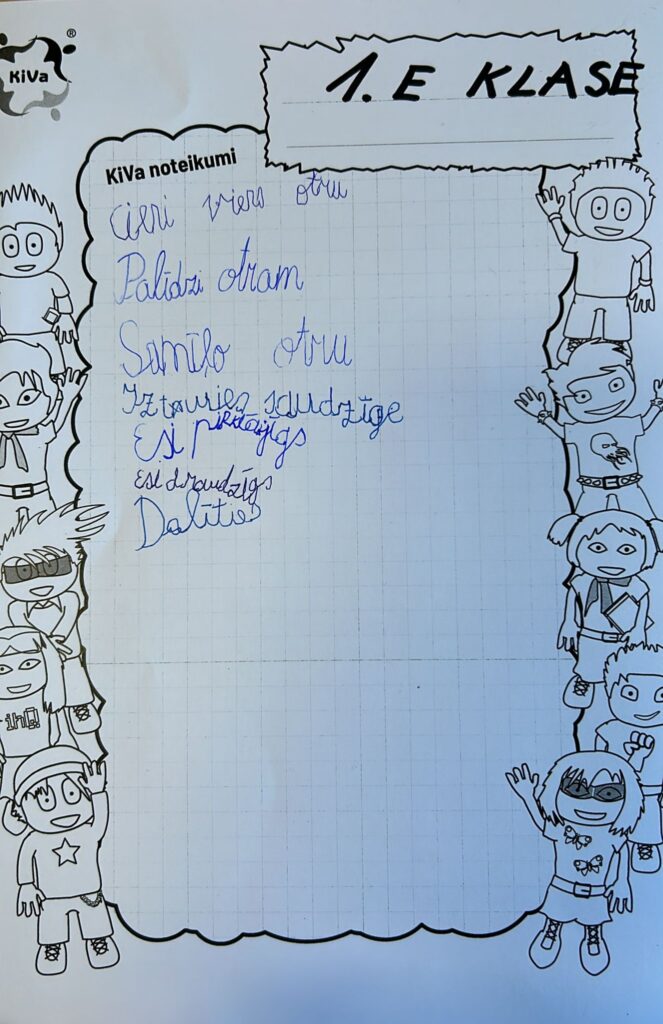 KiVa ®
1. E KLASE
KiVa noteikumi
Cieni viens otru
Palīdzi otram
Samīļo otru
Izturies saudzīge
Esi pieklājīgs
Esi draudzīgs
Dalīties
ihQ!